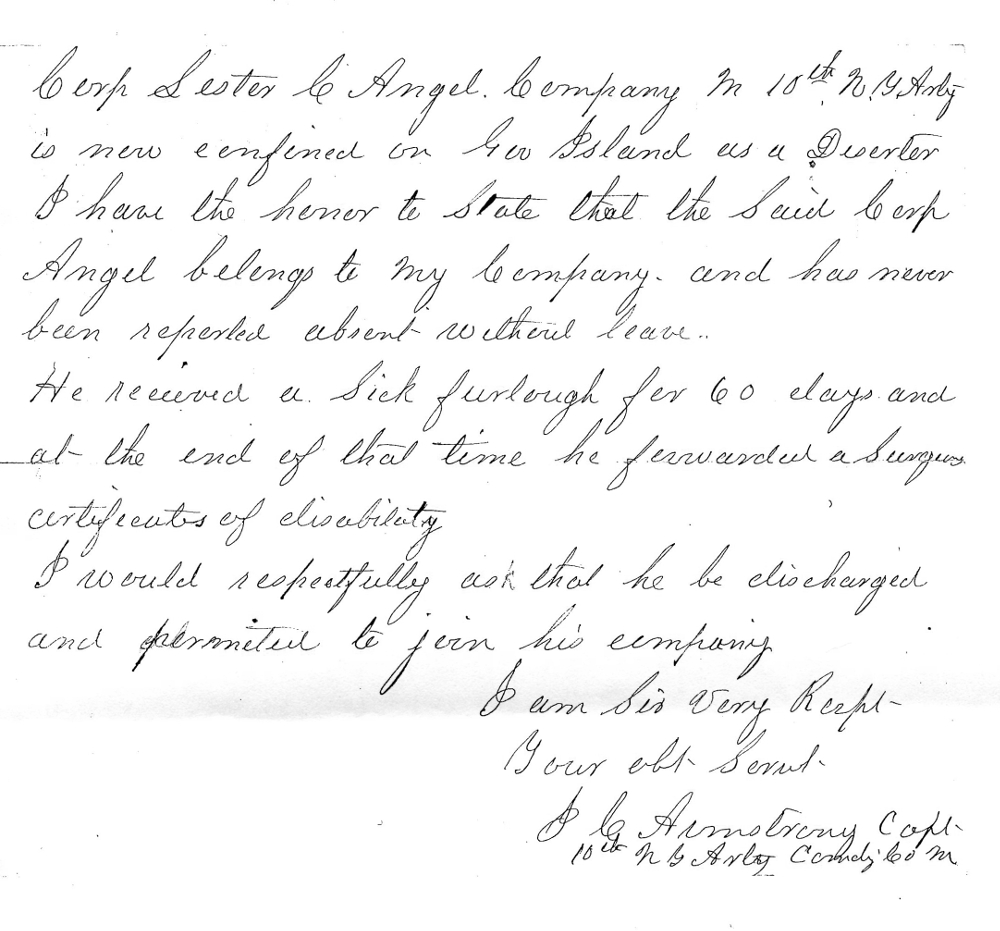 Corp Lester C Angel. Company M 10th N.Y. Arty
is now confined on Gov Island as a Deserter
I have the honor to State that the Said Corp
Angel belongs to My Company. and has never
been reported absent without leave..
He received a Sick furlough for 60 days and
at the end of that time he forwarded a Surgeons
certificates of disability
I would respectfully ask that he be discharged
and permited to join his company
I am Sir Very Respt
Your obt Servt
C Armstrong Capt
10th N Y Arty Comdg Co M